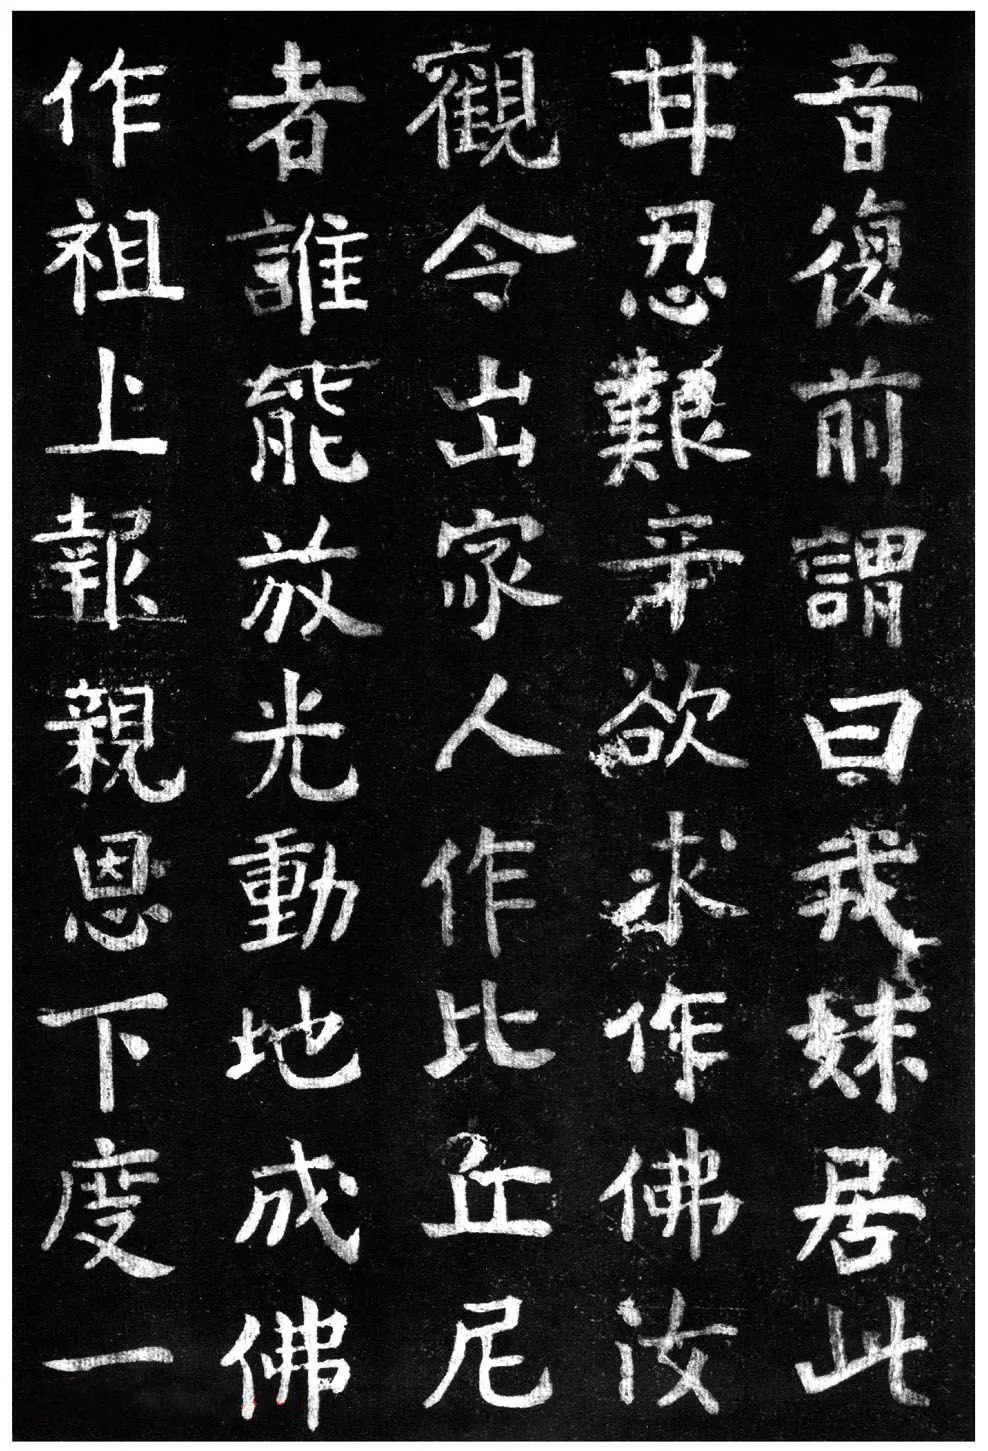 音復前謂曰我妹居此
甘忍艱辛欲求作佛汝
觀今出家人作比丘尼
者誰能放光動地成佛
作祖上報親恩下度一